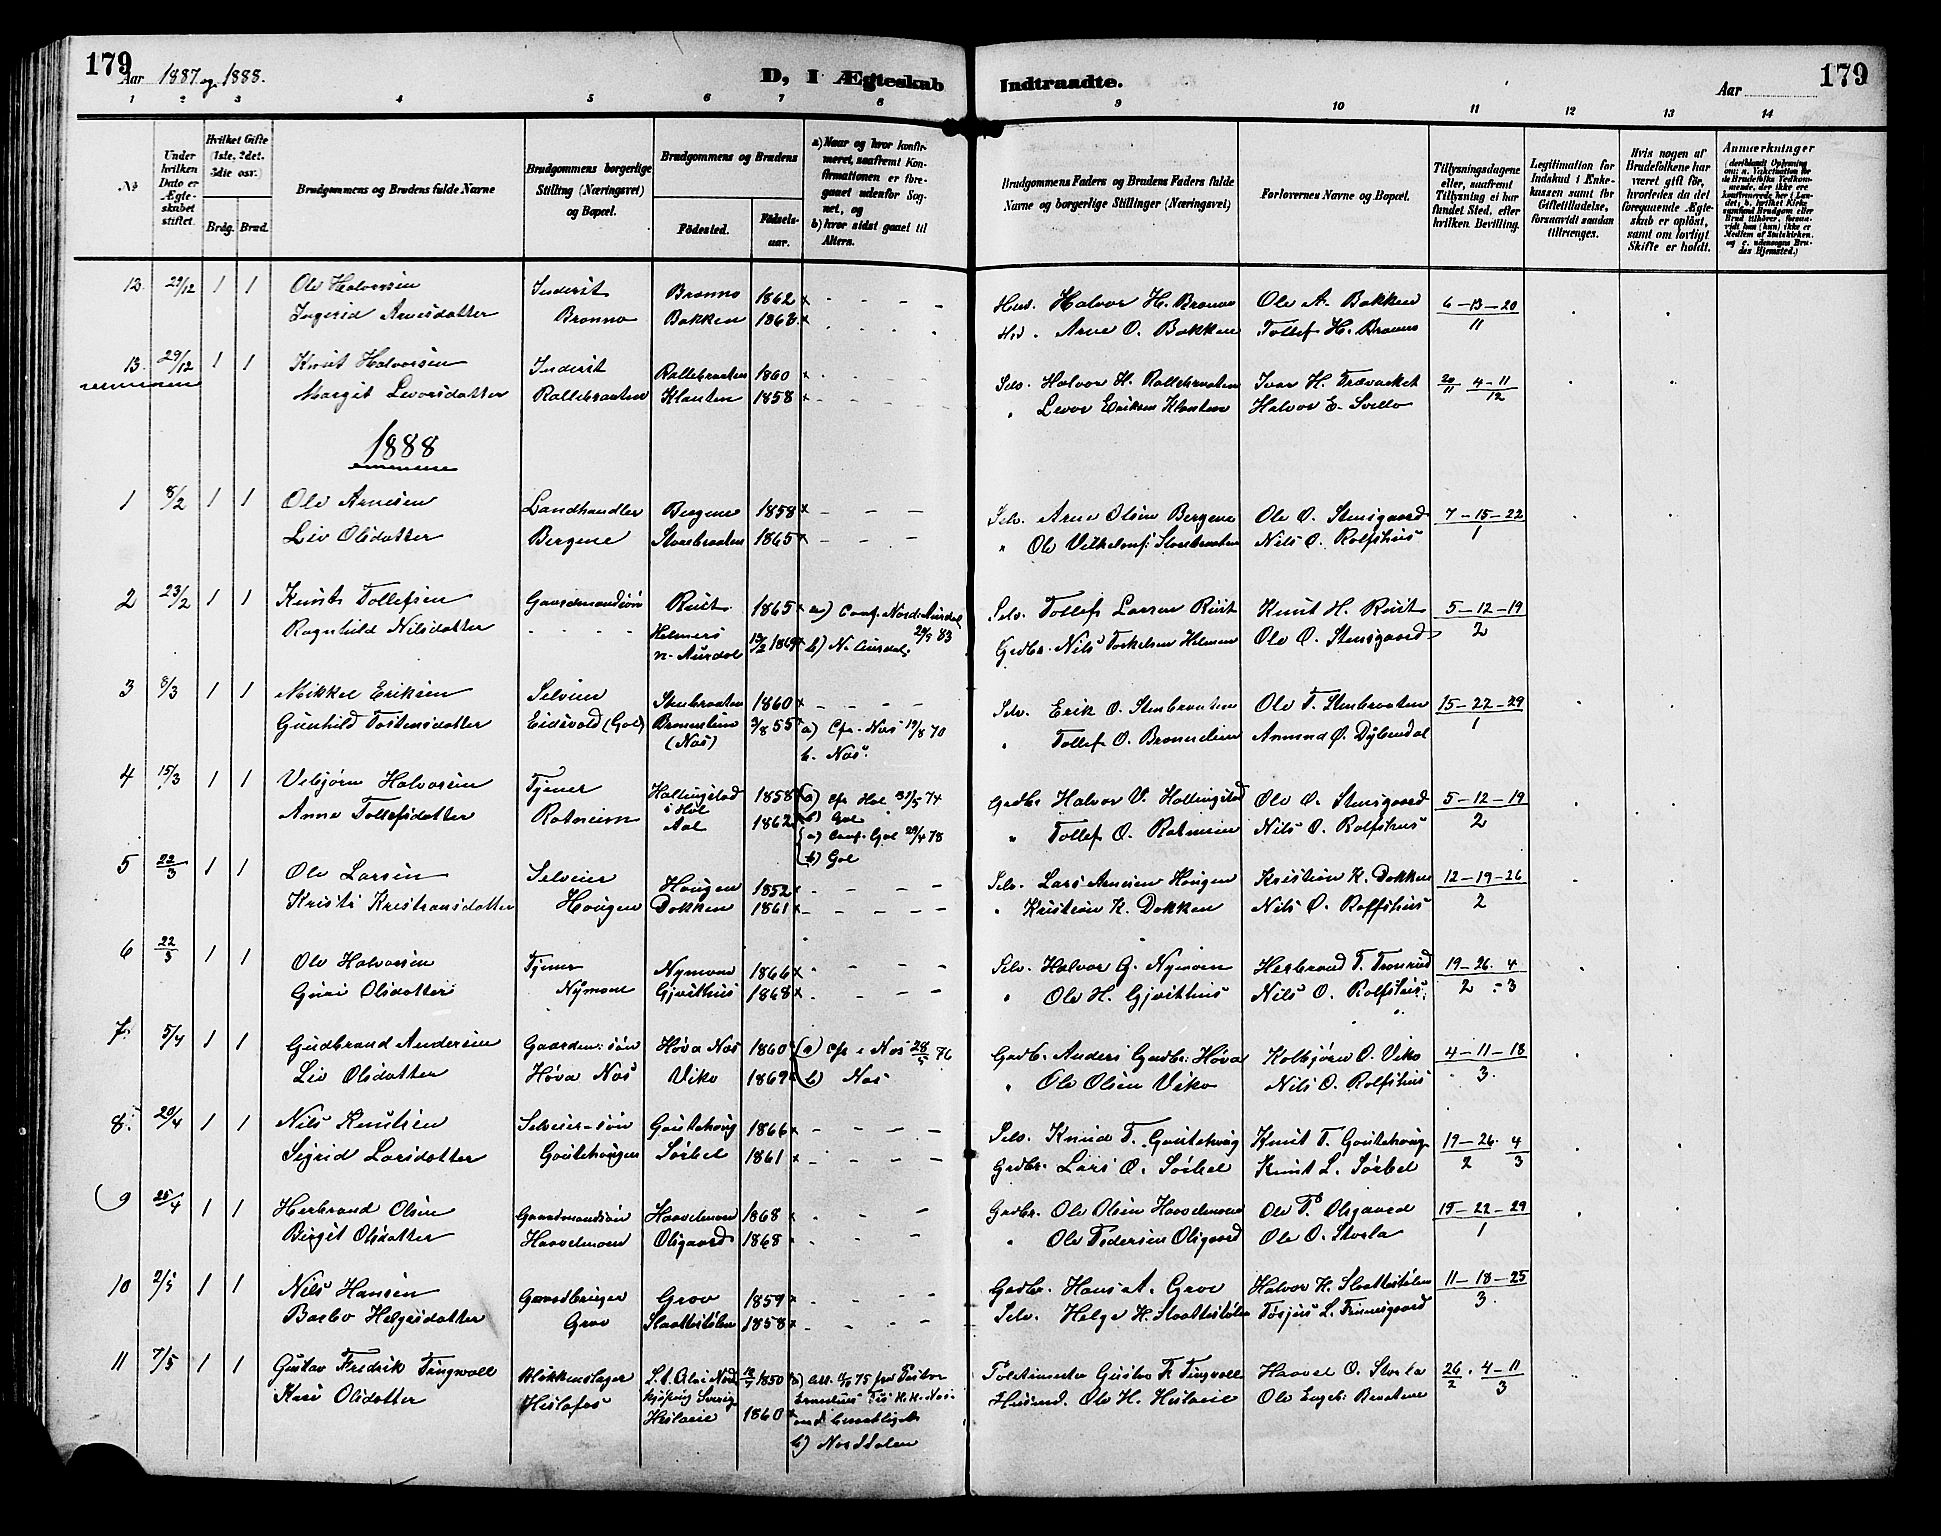 179
Aar 1887 og 1888.
D, I Ægteskab
Indtraadte.
Aar
179
1 2 3 4 5 6 7 8 9 10 11 12 13 14
No
Under hvilken Dato er Ægteskabet stiftet.
Hvilket Gifte (1ste, 2det, 3die osv.)
Brdg. Brud.
Brudgommens og Brudens fulde Navne
Brudgommens borgerlige Stilling (Næringsvei) og Bopæl.
Brudgommens og Brudens
Fødested.
Fødselsaar.
a) Naar og hvor konfirmeret, saafremt Konfirmationen er foregaaet udenfor Sognet, og
b) hvor sidst gaaet til Alters.
Brudgommens Faders og Brudens Faders fulde Navne og borgerlige Stillinger (Næringsvei)
Forlovernes Navne og Bopæl.
Tillysningsdagene eller, saafremt Tillysning ei har fundet Sted, efter hvilken Bevilling.
Legitimation for Indskud i Enkekassen samt for Giftetilladelse, forsaavidt saadan tiltrænges.
Hvis nogen af Brudefolkene har været gift før, hvorledes da det foregaaende Ægteskab er opløst, samt om lovligt Skifte er holdt.
Anmærkninger
12. 29/12 1 1 Ole Halvorsen Inderst Bronno 1862 Husd. Halvor H. Bronno Ole A. Bakken 6-13-20
Ingerid Arnesdatter Bronno Bakken 1863 Arne O. Bakken Tollef H. Bronno 11
13. 29/12 1 1 Knut Halvorsen Inderst Rallebraaten 1860 Selv. Halvor H. Rallebraaten Ivar H. Trævasket 20/11 4-11
Margit Levorsdatter Rallebraaten Klanten 1858 " Levor Eriksen Klanten Halvor E. Svello 12
1888
1 8/2 1 1 Ole Arnesen Landhandler Bergene 1858 Selv. Arne Olsen Bergene Ole O. Stensgaard 7-15-22
Liv Olsdatter Bergene Storebraaten 1865 " Ole Storebraaten Nils O. Rolfshus 1
2 23/2 1 1 Knut Tollefsen Gaardmandsøn Rust 1865 a) Conf. Nord-Aurdal Selv. Tollef Larsen Rust Knut H. Rust 5-12-19
Ragnhild Nilsdatter Helmers 13/2 1869 b) N. Aurdal Grdbr. Nils Torkelsen Helmen Ole O. Stensgaard 2
n. Aurdal
3 8/3 1 1 Mikkel Eriksen Selveier Stenbraaten 1860 Selv. Erik O. Stenbraaten Ole T. Stenbraaten 15-22-29
Gunhild Tostensdatter Eidsvold (Gol) 3/8 55 a) Cfr. Nas 19/8 70 " Tollef O. Amund O. Dybendal 1
(Nas) b. Nas.
4 15/3 1 1 Vebjørn Halvorsen Tjener Hallingstad 1858 a) cfr Hol 31/5 74 Grdbr Halvor V. Hallingstad Ole O. Stensgaard 5-12-19
i Hol b) Gol
Anne Tollefsdatter Rotneim Aal 1862 a) Conf. Gol 29/4 78 " Tollef O. Rotneim Nils O. Rolfshus 2
b) Gol
5 22/3 1 1 Ole Larsen Selveier Haugen 1852 Selv. Lars Arnesen Haugen Kristian K. Dokken 12-19-26
Kristi Kristiansdatter Haugen Dokken 1861 " Kristian K. Dokken Nils O. Rolfshus 2
6 22/3 1 1 Ole Halvorsen Tjener Nymoen 1866 Selv. Halvor G. Nymoen Herbrand T. Tronrud 19-26. 4
Guri Olsdatter Nymoen Gjvithus 1868 " Ole H. Gjvithus Nils O. Rolfshus. 2 - 3
7. 5/4 1 1 Gudbrand Andersen Gaardm. søn Høva Nas 1860 a) cfr i Nas 28/5 76 Grdb. Anders Gudbr. Høva Kolbjørn O. Viko 4-11-18
Liv Olsdatter Høva Nas Viko 1869 b) Nas " Ole Olsen Viko Nils O. Rolfshus 3.
8. 20/4 1 1 Nils Knutsen Selveier-søn Goutehoug 1866 Selv. Knud T. Goutehoug Knut T. Goutehoug 19-26. 4
Sigrid Larsdatter Goutehougen Sørbel 1861 Grdbr. Lars O. Sørbel Knut L. Sørbel 2 3
9 25/4 1 1 Herbrand Olsen Gaardmandsøn Haavelmoen 1868 Grdbr. Ole Olsen Haavelmoen Ole P. Olsgaard 15-22-29
Birgit Olsdatter Haavelmoen Olsgaard 1868 " Ole Pedersen Olsgaard Ole O. Storla 1
10 2/5 1 1 Nils Hansen Gaardbruger Grov 1859 Grdbr. Hans A. Grov Halvor H. Slaattestølen 11-18-25
Barbo Helgesdatter Grov Slaattestølen 1858 Selv. Helge H. Slaattestølen Tosjus L. 3.
11 7/5 1 1 Gustav Fredrik Tingwall Blikkenslager 1850 Gustav F. Tingvall Haavel O. Storla 26/2. 4-11
Kari Olsdatter Heslafos Heslaeie 1860 Husmd. Ole H. Heslaeie Ole Engebr. 3
b) Nordtolen